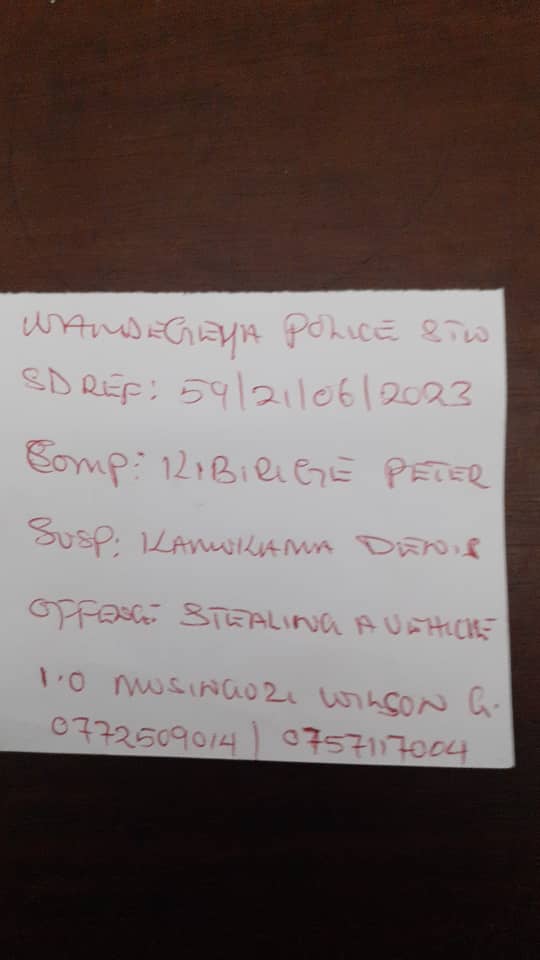 WANDEGEYA POLICE STN
SD REF: 59/21/06/2023
Comp: KIBIRIGE PETER
SUSP: KAMUKAMA DENIS
OFFENCE: STEALING A VEHICLE
I.O MUSINGUZI WILSON G.
0772509014 / 0757117004